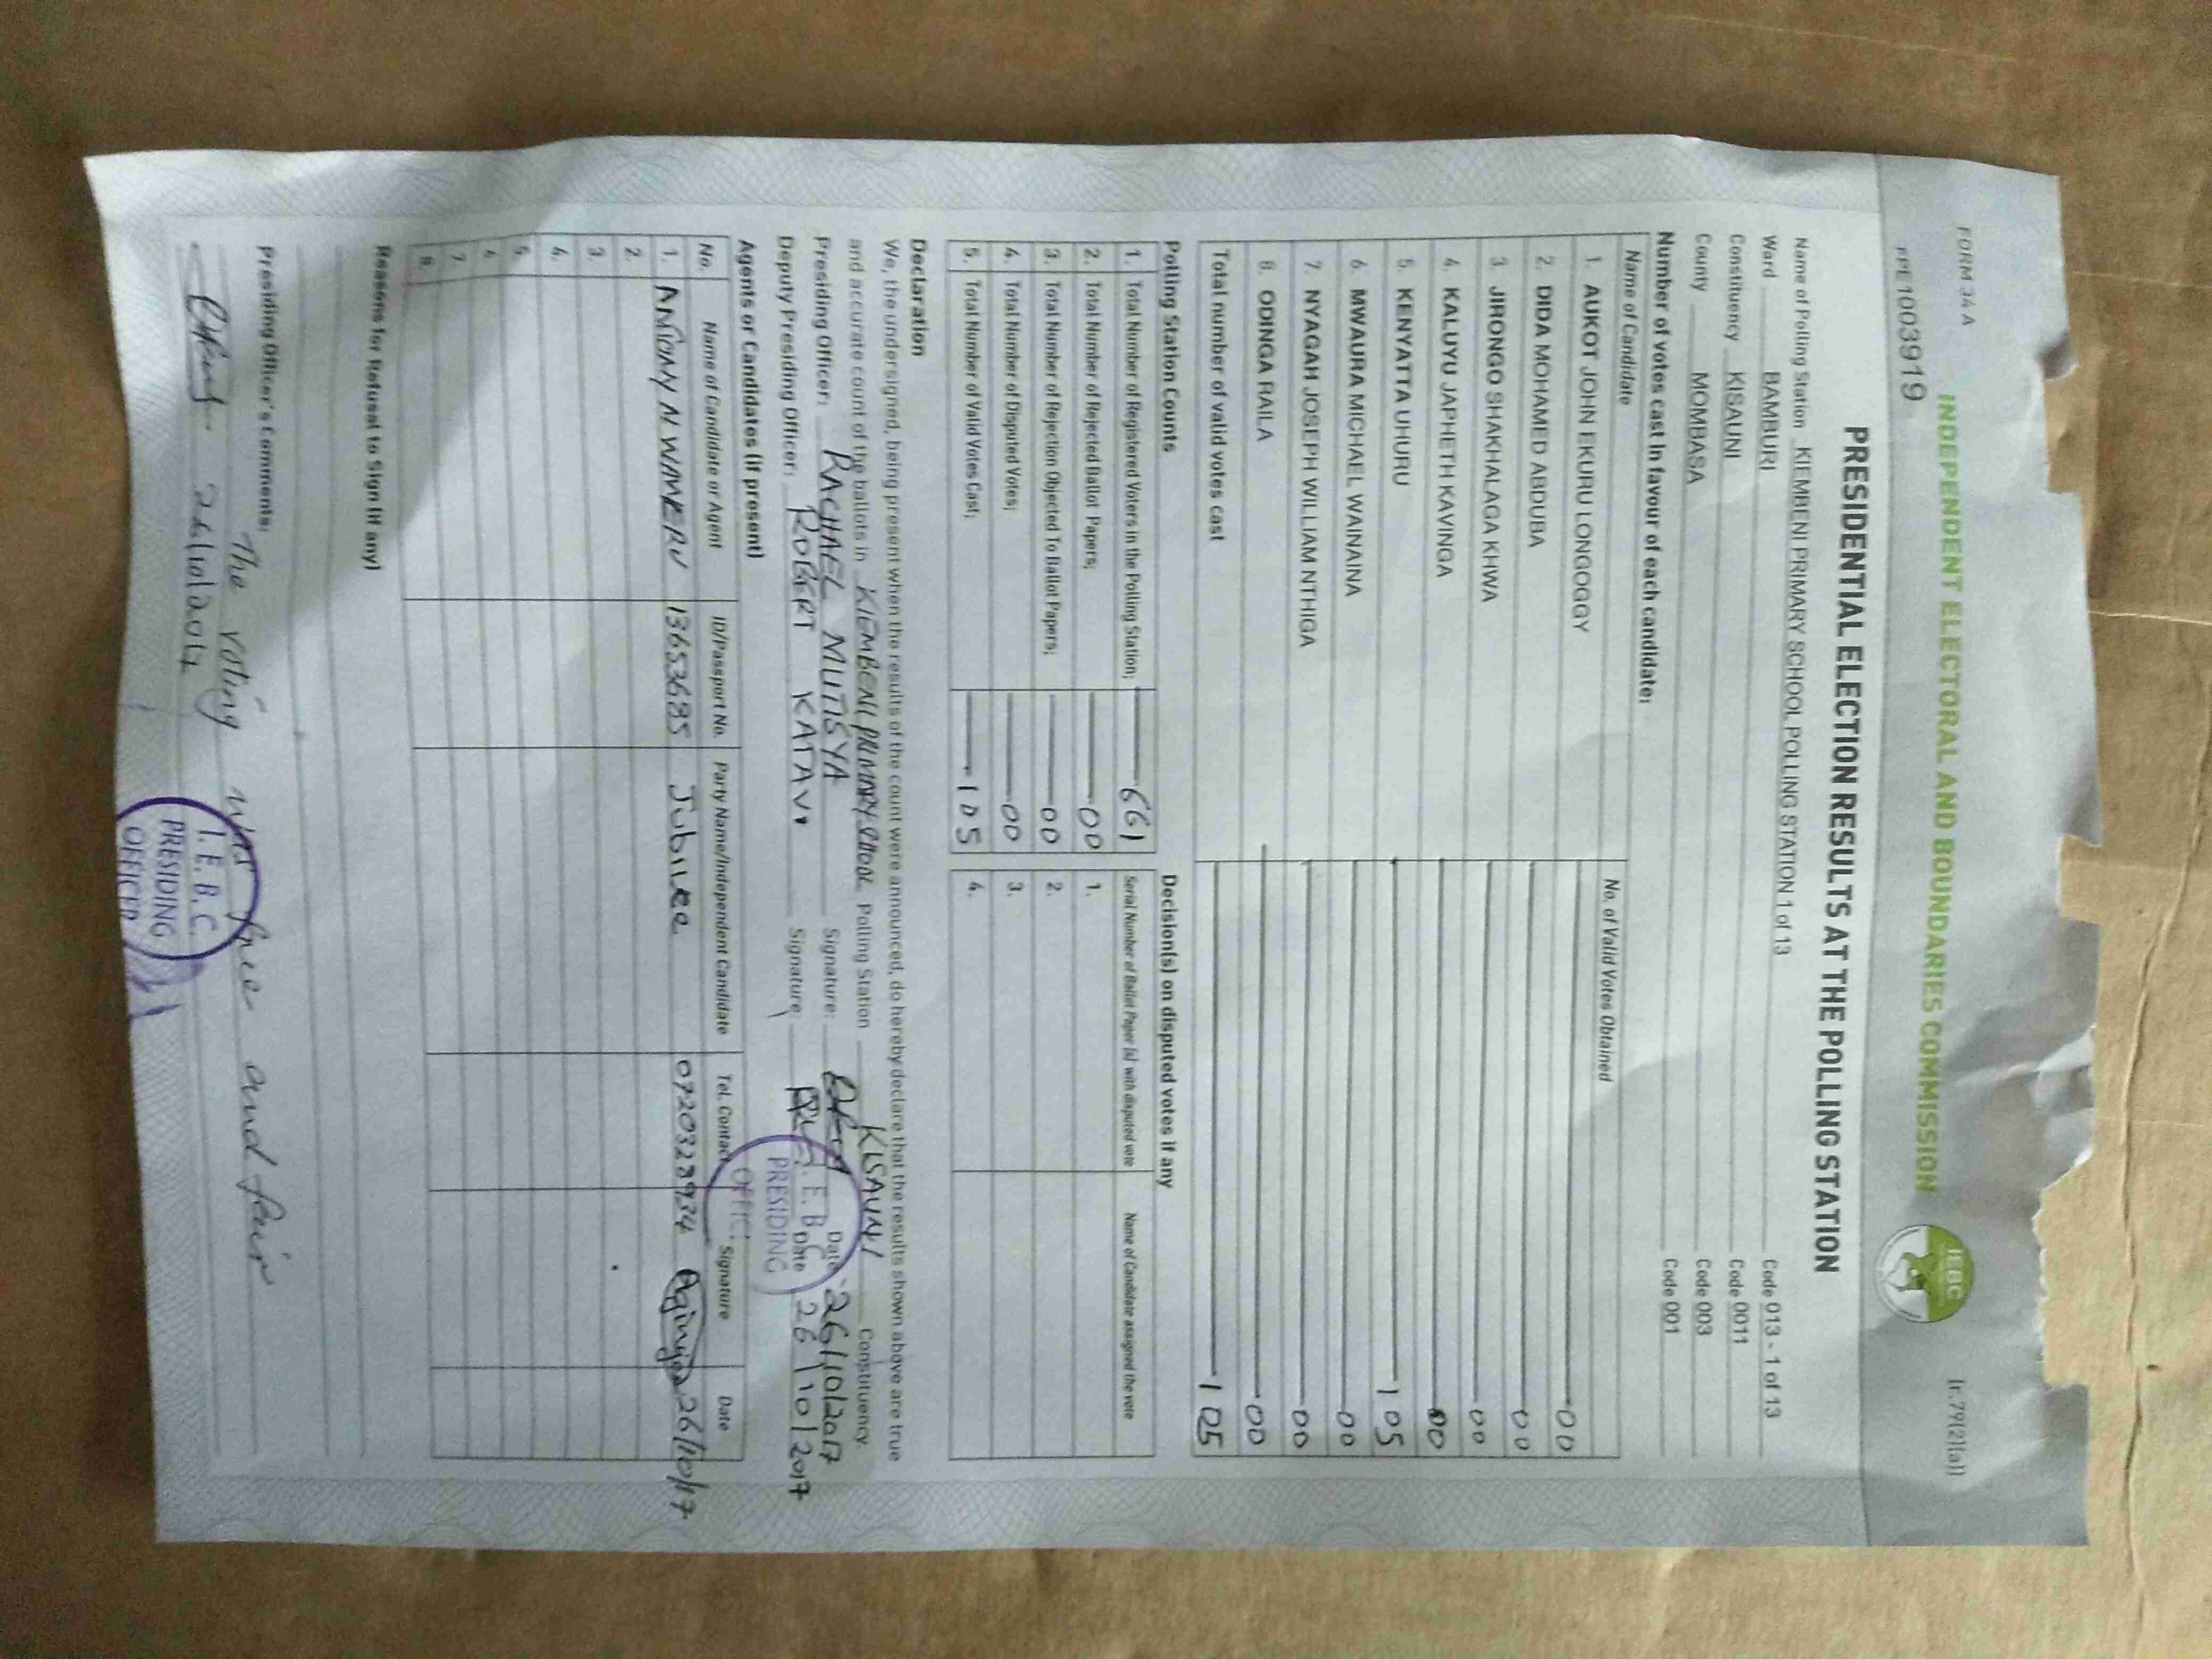 FORM 34 A
[r.79(2)(a)]
INDEPENDENT ELECTORAL AND BOUNDARIES COMMISSION
IEBC
1003919
PRESIDENTIAL ELECTION RESULTS AT THE POLLING STATION
Name of Polling Station KIEMBENI PRIMARY SCHOOL POLLING STATION 1 of 13 Code 013 - 1 of 13
Ward BAMBURI Code 0011
Constituency KISAUNI Code 003
County MOMBASA Code 001
Number of votes cast in favour of each candidate:
Name of Candidate No. of Valid Votes Obtained
1. AUKOT JOHN EKURU LONGOGGY 00
2. DIDA MOHAMED ABDUBA 00
3. JIRONGO SHAKHALAGA KHWA 00
4. KALUYU JAPHETH KAVINGA 00
5. KENYATTA UHURU 105
6. MWAURA MICHAEL WAINAINA 00
7. NYAGAH JOSEPH WILLIAM NTHIGA 00
8. ODINGA RAILA 00
Total number of valid votes cast 105
Polling Station Counts
1. Total Number of Registered Voters in the Polling Station; 661
2. Total Number of Rejected Ballot Papers; 00
3. Total Number of Rejection Objected To Ballot Papers; 00
4. Total Number of Disputed Votes; 00
5. Total Number of Valid Votes Cast; 105
Decision(s) on disputed votes if any
Serial Number of Ballot Paper (s) with disputed vote Name of Candidate assigned the vote
1.
2.
3.
4.
Declaration
We, the undersigned, being present when the results of the count were announced, do hereby declare that the results shown above are true
and accurate count of the ballots in KIEMBENI PRIMARY SCHOOL Polling Station KISAUNI Constituency.
Presiding Officer: RACHAEL MUTISYA Signature: Date 26/10/2017
Deputy Presiding Officer: ROBERT KATAVI Signature: Date 26/10/2017
I.E.B.C
PRESIDING
Agents or Candidates (if present)
No. Name of Candidate or Agent ID/Passport No. Party Name/Independent Candidate Tel. Contact Signature Date
1. ANTONY N WAWERU 13653685 Jubilee 0720323934 26/10/17
2.
3.
4.
5.
6.
7.
8.
Reasons for Refusal to Sign (if any)
Presiding Officer's Comments:
The voting was free and fair
26/10/2017
I.E.B.C
PRESIDING
OFFICER